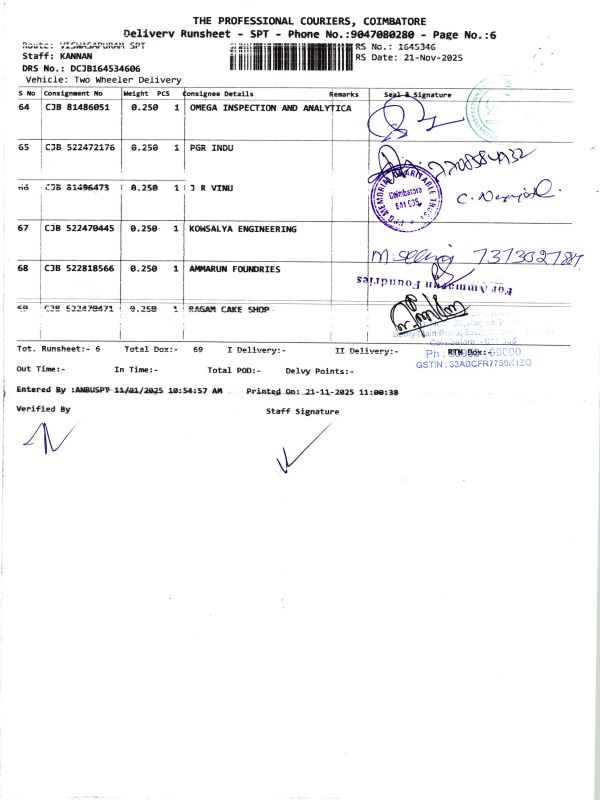 THE PROFESSIONAL COURIERS, COIMBATORE
Delivery Runsheet - SPT - Phone No.:9047080280 - Page No.:6
Route: VISWASAPURAM SPT
RS No.: 1645346
Staff: KANNAN
RS Date: 21-Nov-2025
DRS No.: DCJB164534606
Vehicle: Two Wheeler Delivery
S No Consignment No Weight PCS Consignee Details Remarks Seal & Signature
64 CJB 81486051 0.250 1 OMEGA INSPECTION AND ANALYTICA
65 CJB 522472176 0.250 1 PGR INDU
66 CJB 81496473 0.250 1 J R VINU
Coimbatore
641 035
67 CJB 522470445 0.250 1 KOWSALYA ENGINEERING
68 CJB 522818566 0.250 1 AMMARUN FOUNDRIES
For Ammarun Foundries
69 CJB 522470471 0.250 1 RAGAM CAKE SHOP
Tot. Runsheet:- 6 Total Dox:- 69 I Delivery:- II Delivery:- RTN Dox:-
Out Time:- In Time:- Total POD:- Delvy Points:-
Entered By :ANBUSPT 11/21/2025 10:54:57 AM Printed On: 21-11-2025 11:00:38
Verified By Staff Signature